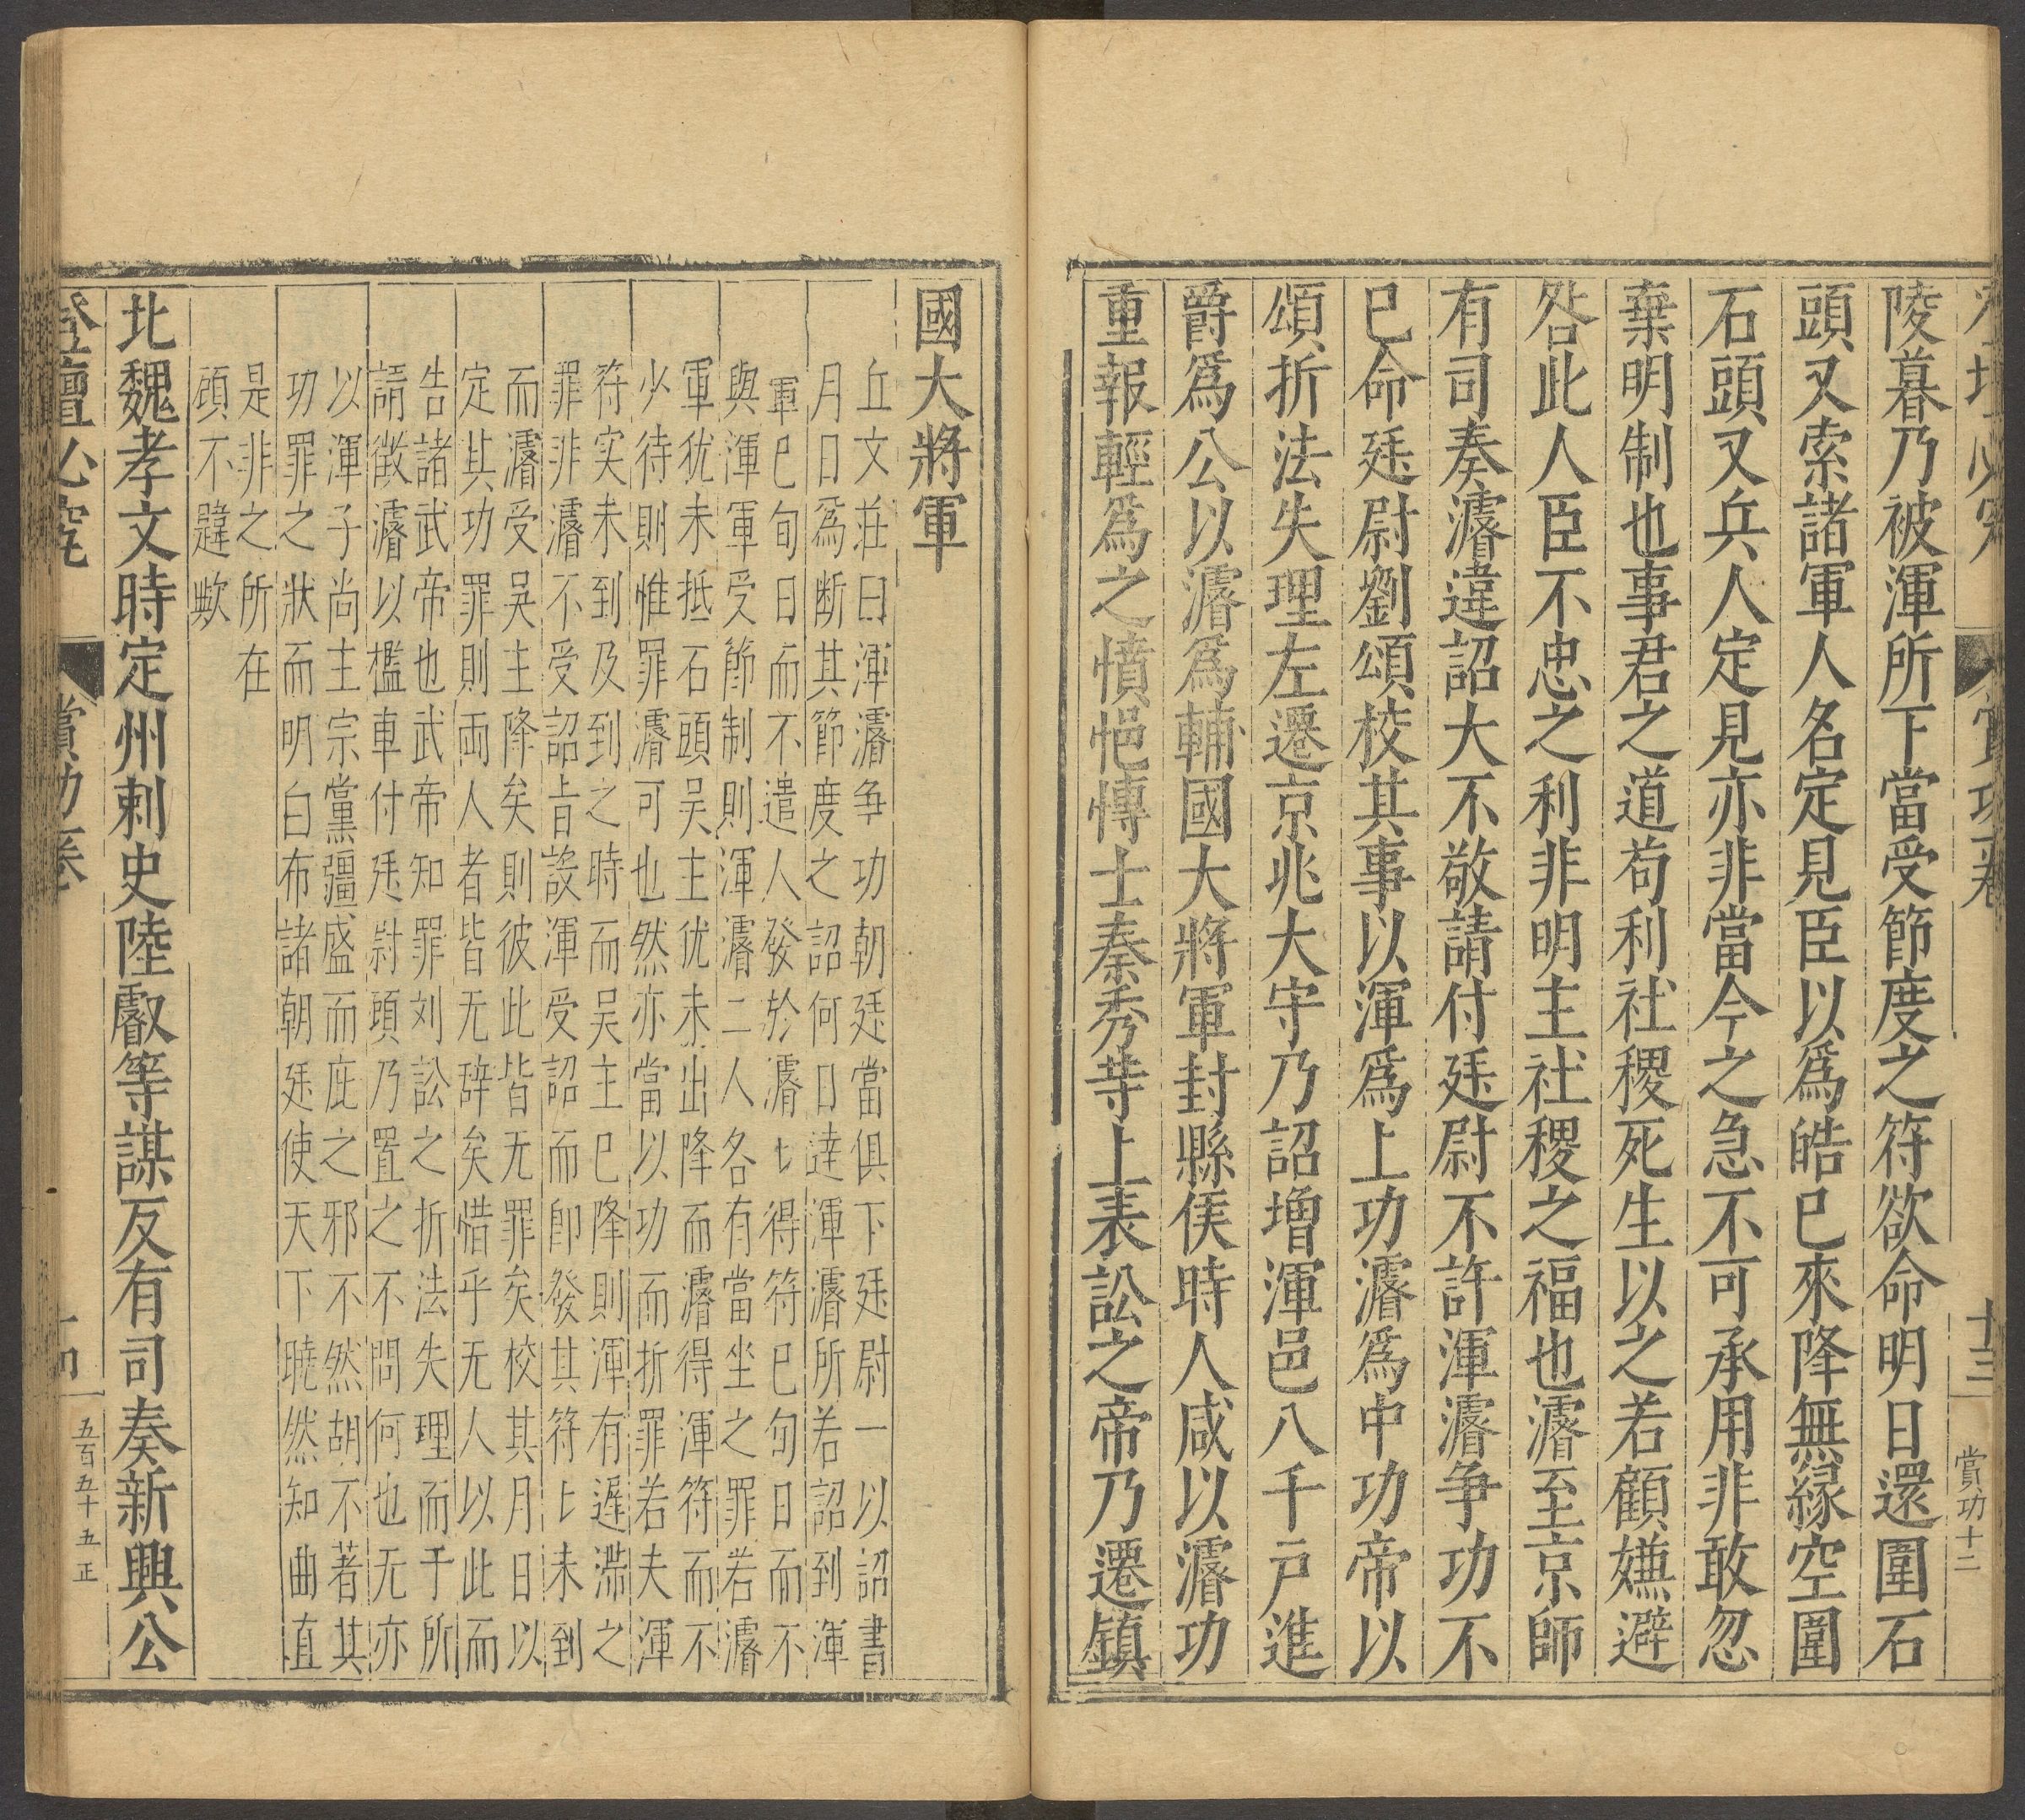 十三
賞功十二
陵暮乃被渾所下當受節度之符欲命明日還圍石
頭又索諸軍人名定見臣以爲皓已來降無緣空圍
石頭又兵人定見亦非當今之急不可承用非敢忽
棄明制也事君之道苟利社稷死生以之若顧嫌避
咎此人臣不忠之利非明主社稷之福也濬至京師
有司奏濬違詔大不敬請付廷尉不許渾濬爭功不
已命廷尉劉頌校其事以渾爲上功濬爲中功帝以
頌折法失理左遷京兆大守乃詔增渾邑八千戶進
爵爲公以濬爲輔國大將軍封縣侯時人咸以濬功
重報輕爲之憤悒博士秦秀䓁上表訟之帝乃遷鎮
國大將軍
丘文莊曰渾濬争功朝廷當俱下廷尉一以詔書
月日爲断其節度之詔何日達渾濬所若詔到渾
軍已旬日而不遣人發於濬七得符已旬日而不
與渾軍受節制則渾濬二人各有當坐之罪若濬
軍犹未抵石頭吴主犹未出降而濬得渾符而不
少待則惟罪濬可也然亦當以功而折罪若夫渾
符实未到及到之時而吴主已降則渾有遲滞之
罪非濬不受詔旨設渾受詔而卽發其符上未到
而濬受吴主降矣則彼此皆无罪矣校其月日以
定其功罪則両人者皆无辝矣惜乎无人以此而
告諸武帝也武帝知罪刘訟之折法失理而于所
請徵濬以檻車付廷尉頭乃置之不問何也无亦
以渾子尚主宗黨彊盛而庇之邪不然胡不著其
功罪之狀而明白布諸朝廷使天下曉然知曲直
是非之所在
頋不韙歟
北魏孝文時定州刺史陸叡等謀反有司奏新興公
登壇必究
賞功卷
十四
五百五十五正